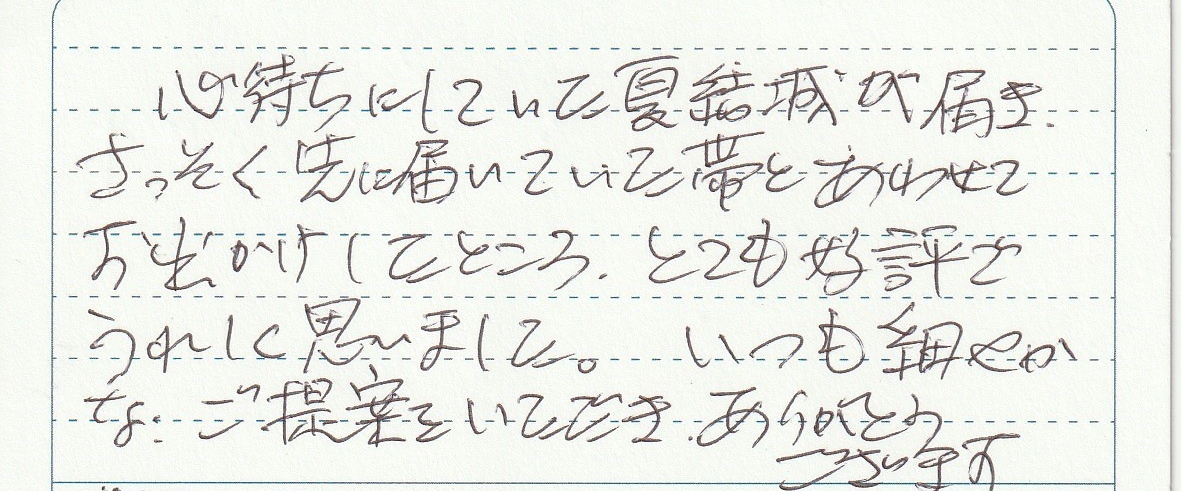 心待ちにしていた夏結城が届き、
さっそく先に届いていた帯とあわせて
お出かけしたところ、とても好評で
うれしく思いました。 いつも細やか
な ご提案をいただき、ありがとう
ございます